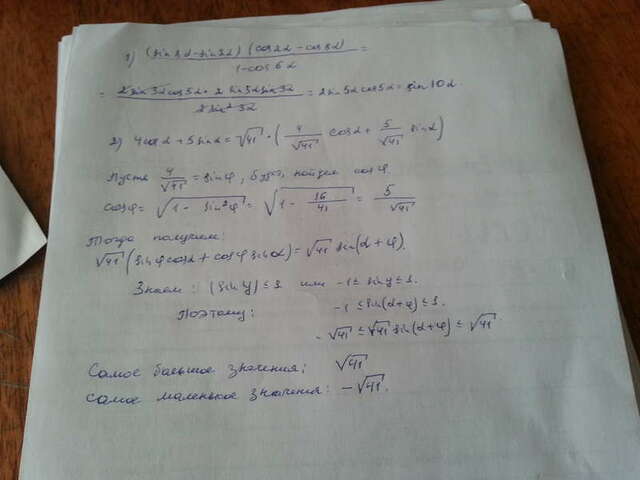 1) (sin8α-sin2α)(cos2α-cos8α) / 1-cos6α =
= 2sin3αcos5α·2sin5αsin3α / 2sin²3α = 2sin5αcos5α = sin10α.
2) 4cosα+5sinα = √41·(4/√41 cosα + 5/√41 sinα)
Пусть 4/√41 = sinφ, найдем cosφ.
cosφ = √(1 - sin²φ) = √(1 - 16/41) = 5/√41
Тогда получим:
√41(sinφcosα + cosφsinα) = √41 sin(α+φ).
Знаем: |sin y| ≤ 1 или -1 ≤ sin y ≤ 1.
Поэтому: -1 ≤ sin(α+φ) ≤ 1.
-√41 ≤ √41 sin(α+φ) ≤ √41.
Самое большое значения: √41
Самое маленькое значения: -√41.